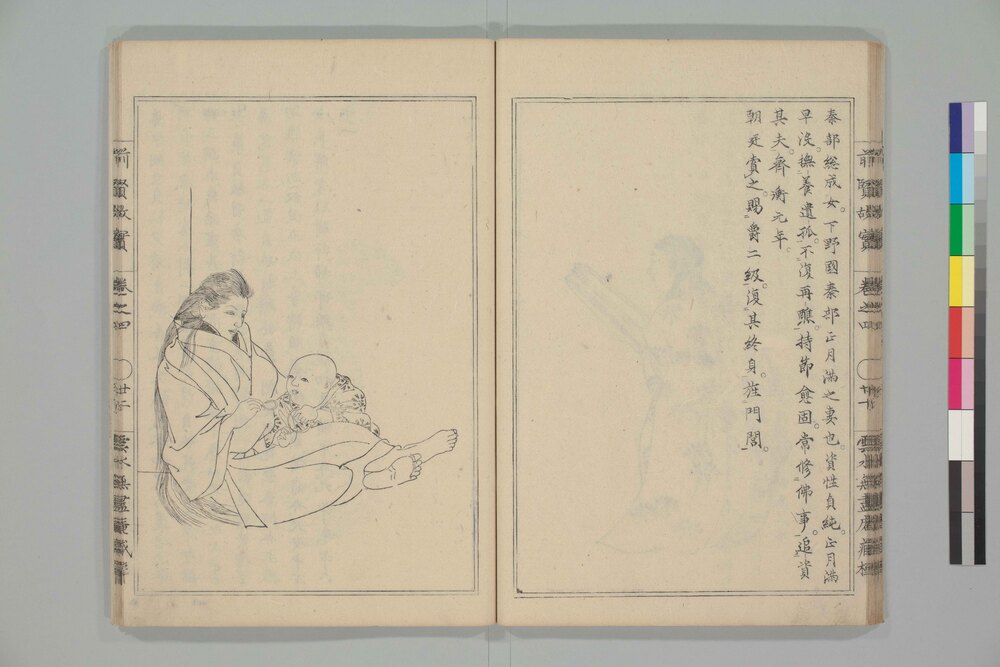 秦部総成女。下野國秦部正月滿之妻也。資性貞純。正月滿
早沒。撫養遺孤。不復再醮。持節愈固。常修佛事。追資
其夫。齊衡元年。
朝廷賞之。賜爵二級。復其終身。旌門閭。
前賢故實
卷之四